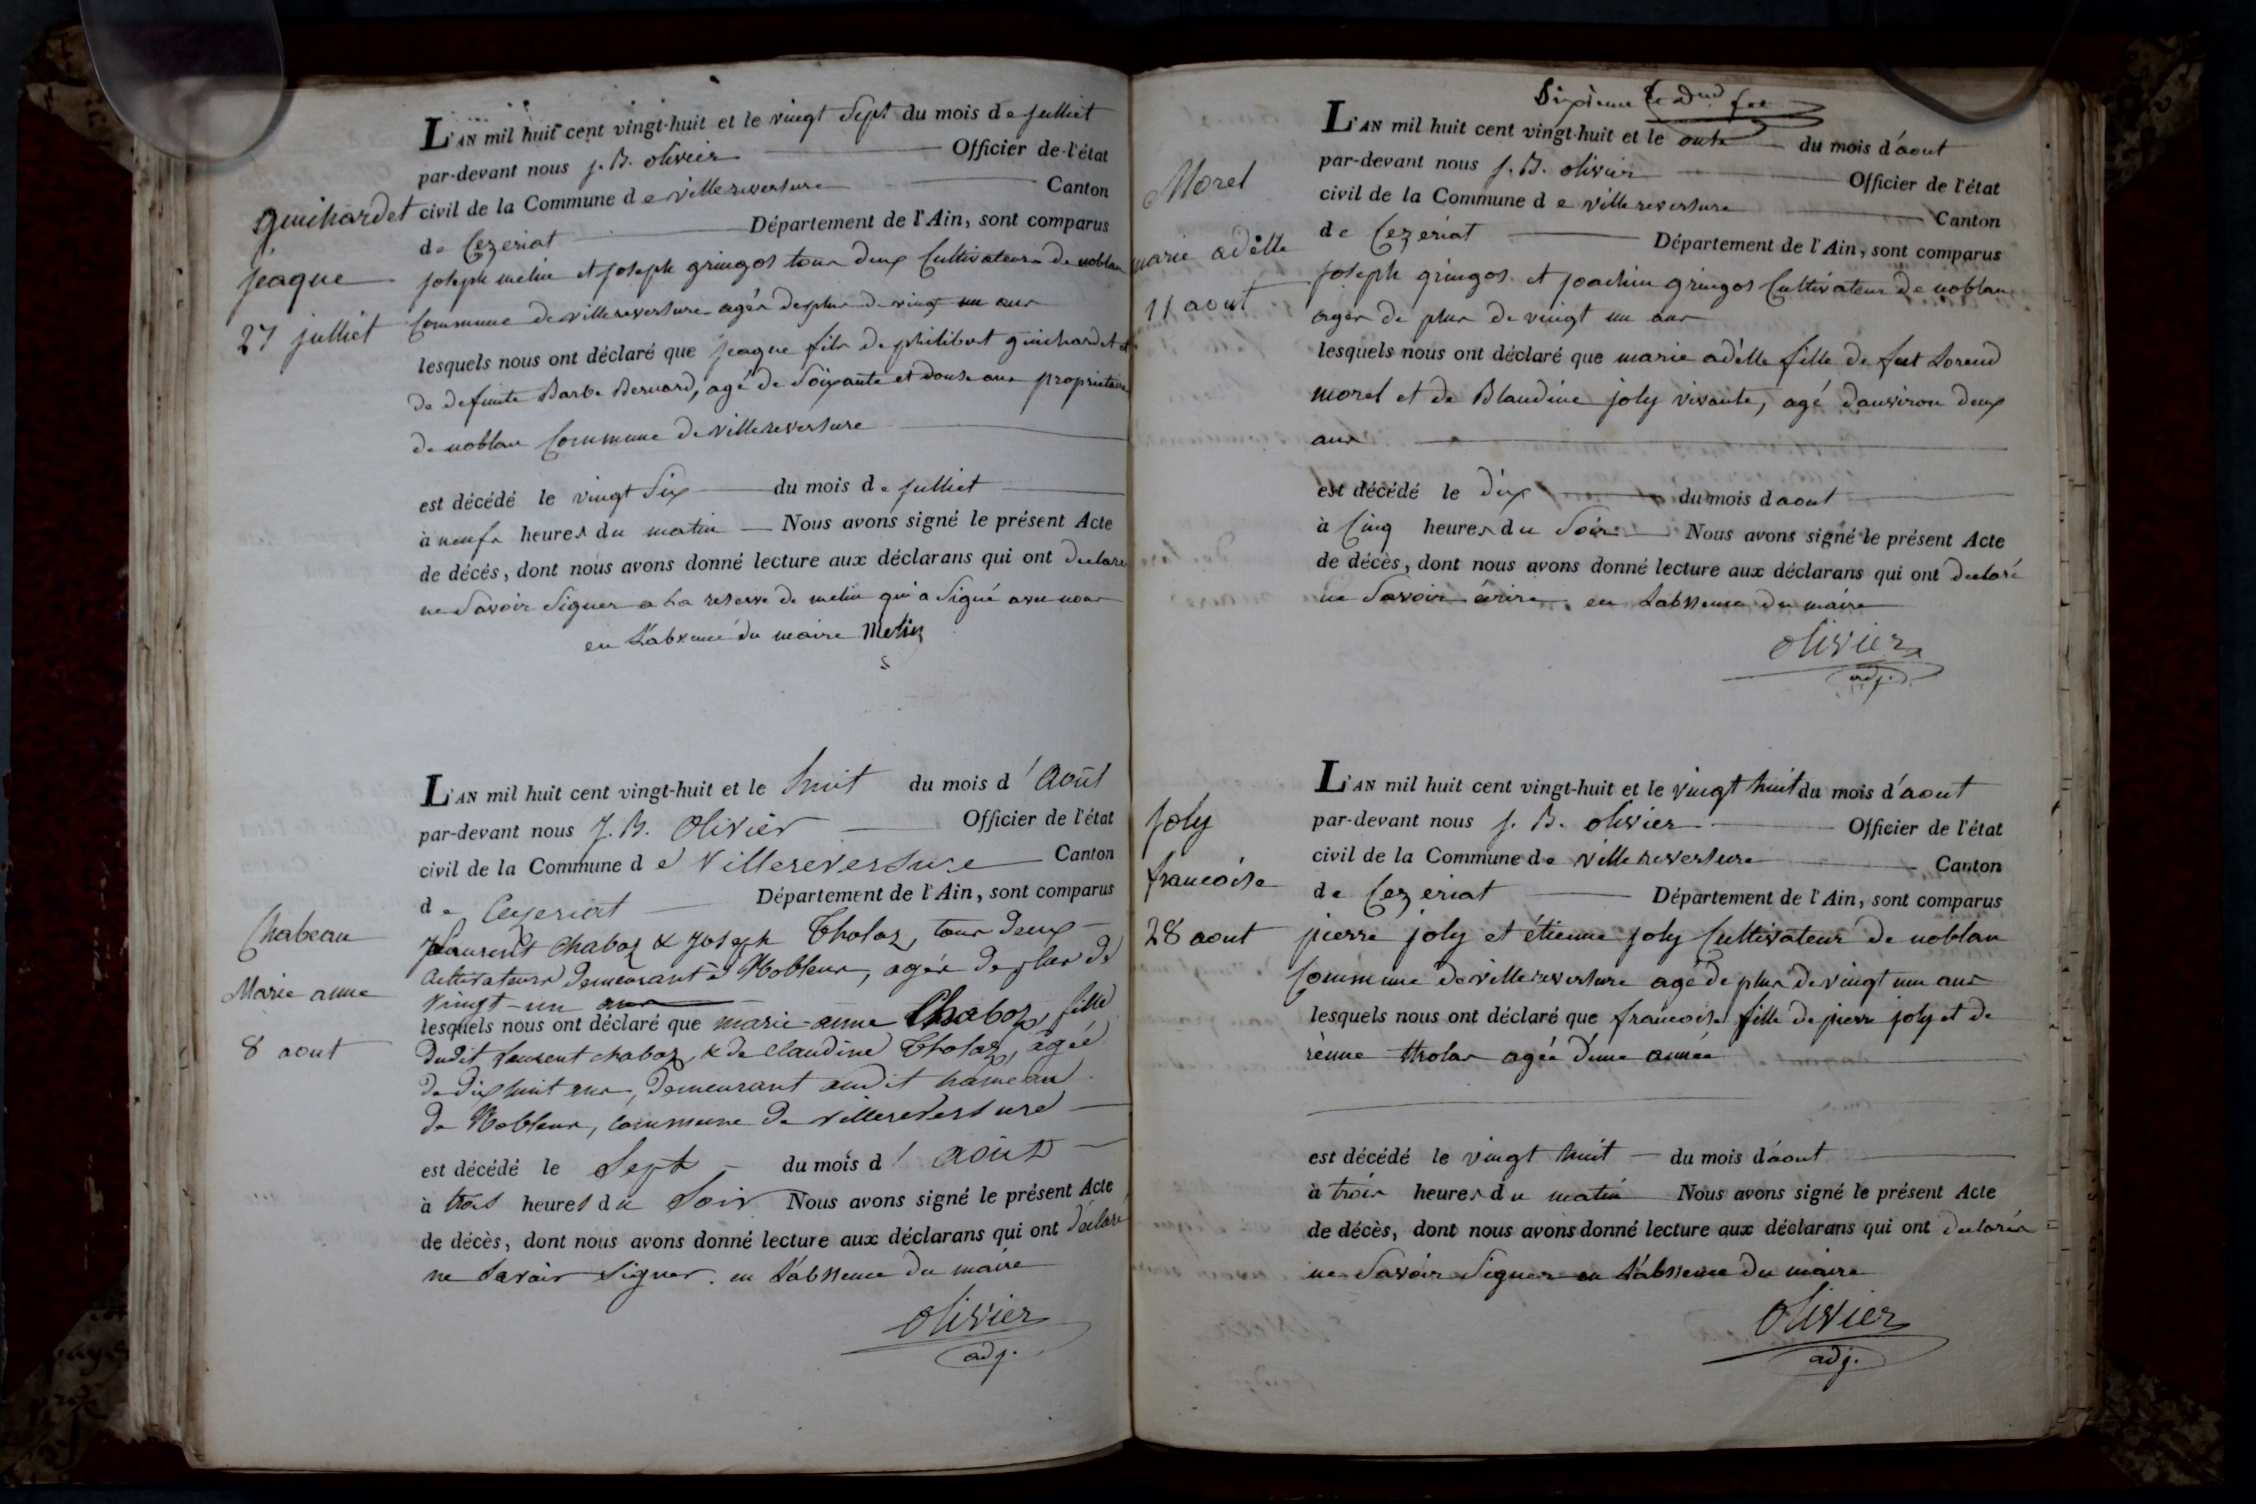 L'AN mil huit cent vingt-huit et le vingt Sept du mois de juilliet
par-devant nous j. B. olivier Officier de l'état
civil de la Commune de villereversure Canton
de Cezeriat Département de l'Ain, sont comparus
joseph melin et joseph gringos tous deux Cultivateurs de noblan
Commune de villereversure agés de plus de vingt un ans
lesquels nous ont déclaré que jeaque fils de philibert guichardet et
de defunte Barbe Bernard, agé de Soixante et douse ans propriétaire
de noblan Commune de villereversure
est décédé le vingt Six du mois de juilliet
à neufs heures du matin Nous avons signé le présent Acte
de décés, dont nous avons donné lecture aux déclarans qui ont declare
ne Savoir Signer a La reserve de melin qui a Signé avec nous
en L'absence du maire Melin
guichardet
jeaque
27 juilliet
L'AN mil huit cent vingt-huit et le huit du mois d'Août
par-devant nous J. B. Olivier Officier de l'état
civil de la Commune de Villereversure Canton
de Ceyzeriat Département de l'Ain, sont comparus
Laurent Chaboz & Joseph Tholaz, tous deux
Cultivateurs demeurant à Nobleur, agés de plus de
vingt-un ans
lesquels nous ont déclaré que marie-anne Chaboz, fille
dudit Laurent chaboz, & de Claudine Tholaz, agée
de dix huit ans, demeurant audit hameau
de Nobleur, commune de villereversure
est décédé le Sept du mois d'août
à trois heures du Soir Nous avons signé le présent Acte
de décès, dont nous avons donné lecture aux déclarans qui ont déclaré
ne Savoir Signer. en L'absence du maire
olivier
adj.
Chabeau
Marie anne
8 aout
Sixieme
L'AN mil huit cent vingt-huit et le onze du mois d'aout
par-devant nous j. B. olivier Officier de l'état
civil de la Commune de villereversure Canton
de Cezeriat Département de l'Ain, sont comparus
joseph gringos et joachin gringos Cultivateur de noblan
ages de plus de vingt un ans
lesquels nous ont déclaré que marie adélle fille de feut Lorend
morel et de Blandine joly vivante, agé d'anviron deux
ans
est décédé le dix du mois d'aout
à Cinq heures du Soir Nous avons signé le présent Acte
de décès, dont nous avons donné lecture aux déclarans qui ont declaré
ne Savoir écrire en L'absence du maire
olivier
adj.
Morel
marie adélle
11 aout
L'AN mil huit cent vingt-huit et le vingt huit du mois d'aout
par-devant nous j. B. olivier Officier de l'état
civil de la Commune de villereversure Canton
de Cezeriat Département de l'Ain, sont comparus
pierre joly et étienne joly Cultivateur de noblan
Commune de villereversure agé de plus de vingt un ans
lesquels nous ont déclaré que francoise fille de pierre joly et de
tholas agée d'une année
est décédé le vingt huit du mois d'aout
à trois heures du matin Nous avons signé le présent Acte
de décès, dont nous avons donné lecture aux déclarans qui ont declarés
ne Savoir Signer en L'absence du maire
olivier
adj.
joly
francoise
28 aout